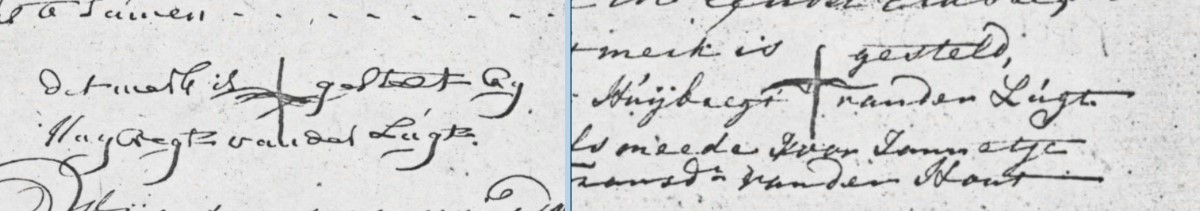 te Samen
dit merk is gestelt by
Huybregt vander Lúgt.
merk is gesteld,
Húijbregt vanden Lúgt
ls meede voor Jannetje
vanden Hout